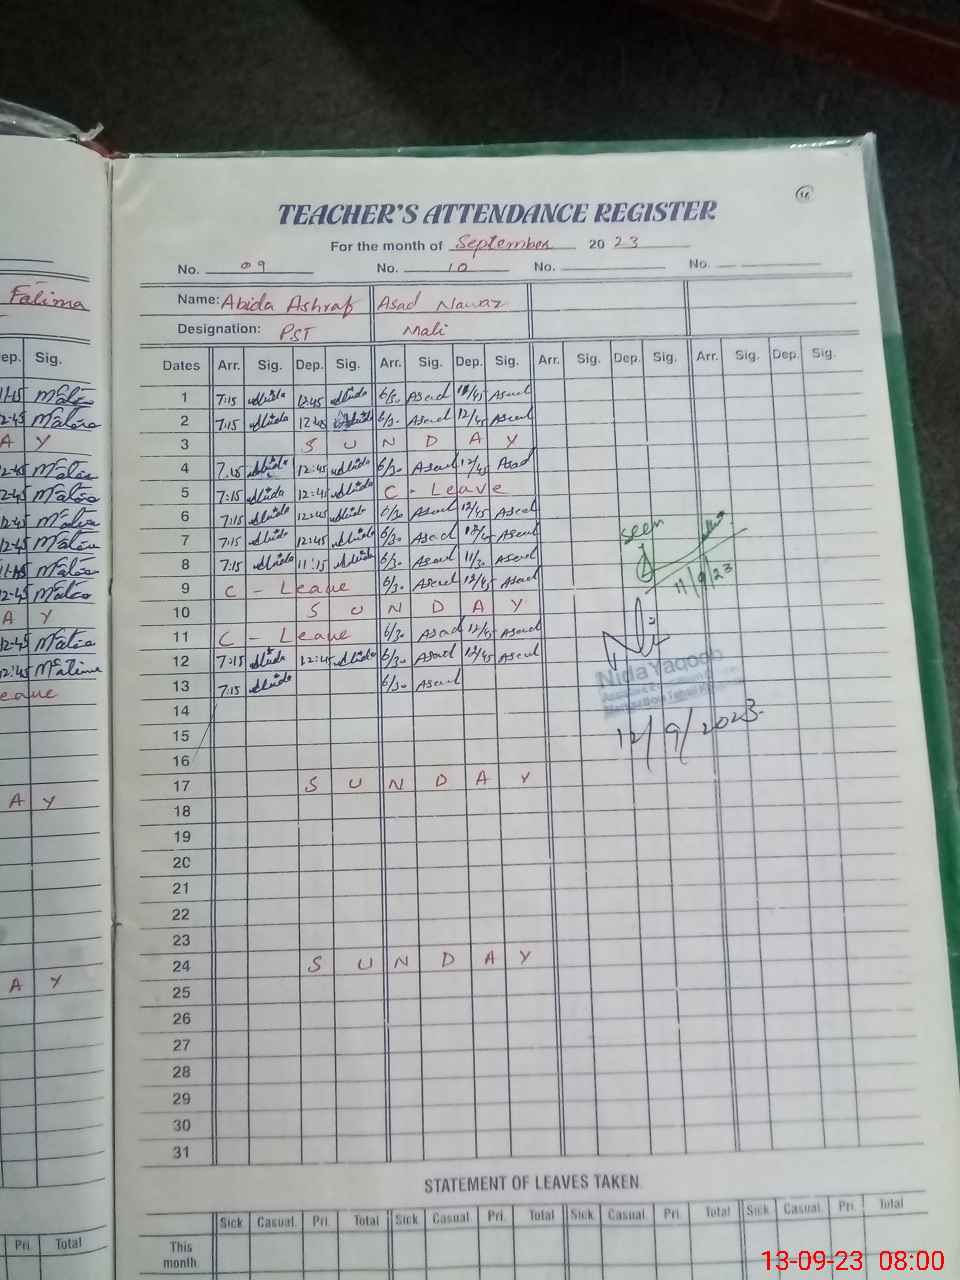 16
TEACHER'S ATTENDANCE REGISTER
For the month of September 2023
No. 09 No. 10 No. No.
Fatima Name: Abida Ashraf Asad Nawaz
Designation: PST Mali
ep. Sig. Dates Arr. Sig. Dep. Sig. Arr. Sig. Dep. Sig. Arr. Sig. Dep. Sig. Arr. Sig. Dep. Sig.
11-15 1 7:15 12:45 6/30 Asad 12/45 Asad
12-45 2 7:15 12:45 6/30 Asad 12/45 Asad
A Y 3 S U N D A Y
12-45 4 7:15 12:45 6/30 Asad 12/45 Asad
12-45 5 7:15 12:45 C - Leave
12-45 6 7:15 12:45 6/30 Asad 12/45 Asad
12-45 7 7:15 12:45 6/30 Asad 12/45 Asad
11-15 8 7:15 11:15 6/30 Asad 11/30 Asad
12-45 9 C - Leave 6/30 Asad 12/45 Asad
A Y 10 S U N D A Y
12-45 11 C - Leave 6/30 Asad 12/45 Asad
12:45 12 7:15 12:45 6/30 Asad 12/45 Asad
eave 13 7:15 6/30 Asad
seen
11/9/23
Nida Yaqoob
12/9/2023.
14
15
16
17 S U N D A Y
A Y 18
19
20
21
22
23
24 S U N D A Y
A Y 25
26
27
28
29
30
31
STATEMENT OF LEAVES TAKEN
Sick Casual Pri. Total Sick Casual Pri. Total Sick Casual Pri. Total Sick Casual Pri. Total
Pri. Total This
month
13-09-23 08:00